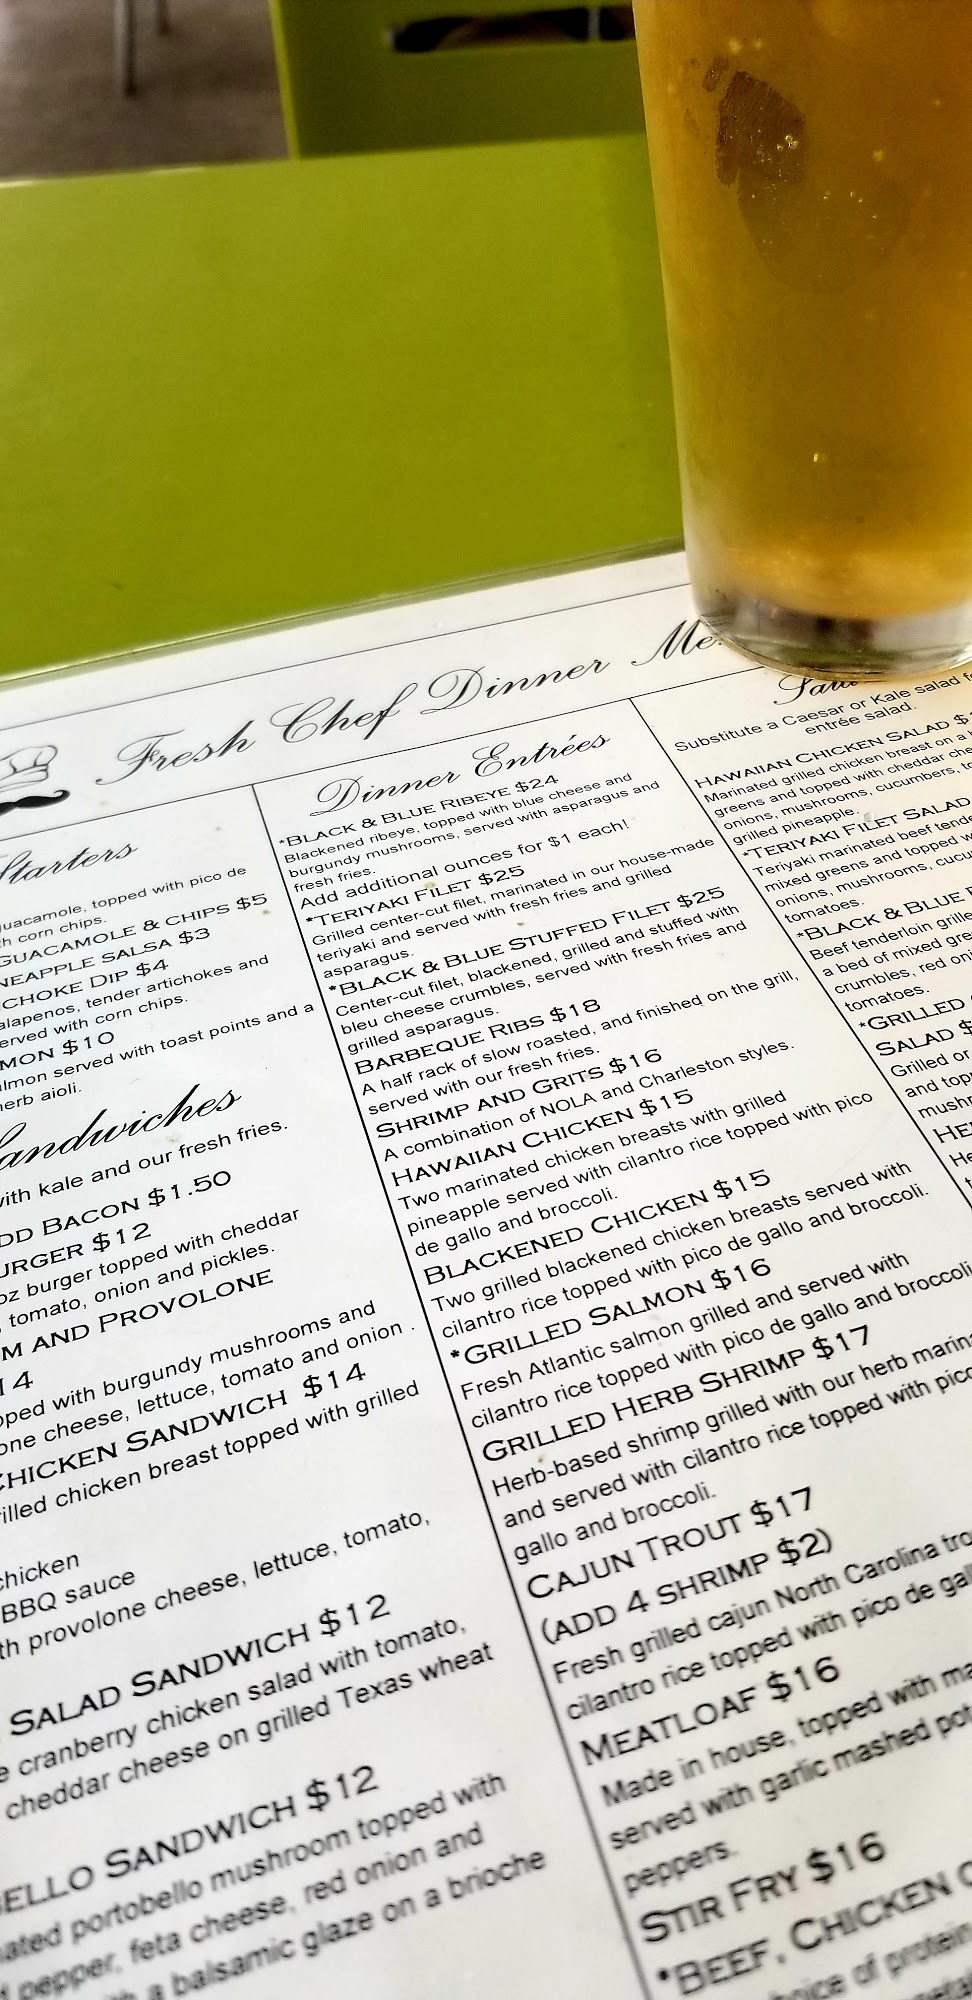 Fresh Chef Dinner
Starters
guacamole, topped with pico de
corn chips.
GUACAMOLE & CHIPS $5
SALSA $3
DIP $4
tender artichokes and
served with corn chips.
$10
served with toast points and a
herb aioli.
Sandwiches
with kale and our fresh fries.
BACON $1.50
$12
oz burger topped with cheddar
tomato, onion and pickles.
AND PROVOLONE
14
with burgundy mushrooms and
cheese, lettuce, tomato and onion .
CHICKEN SANDWICH $14
chicken breast topped with grilled
chicken
BBQ sauce
provolone cheese, lettuce, tomato,
SALAD SANDWICH $12
cranberry chicken salad with tomato,
cheddar cheese on grilled Texas wheat
SANDWICH $12
portobello mushroom topped with
pepper, feta cheese, red onion and
a balsamic glaze on a brioche
Dinner Entrées
*BLACK & BLUE RIBEYE $24
Blackened ribeye, topped with blue cheese and
burgundy mushrooms, served with asparagus and
fresh fries.
Add additional ounces for $1 each!
*TERIYAKI FILET $25
Grilled center-cut filet, marinated in our house-made
teriyaki and served with fresh fries and grilled
asparagus.
*BLACK & BLUE STUFFED FILET $25
Center-cut filet, blackened, grilled and stuffed with
bleu cheese crumbles, served with fresh fries and
grilled asparagus.
BARBEQUE RIBS $18
A half rack of slow roasted, and finished on the grill,
served with our fresh fries.
SHRIMP AND GRITS $16
A combination of NOLA and Charleston styles.
HAWAIIAN CHICKEN $15
Two marinated chicken breasts with grilled
pineapple served with cilantro rice topped with pico
de gallo and broccoli.
BLACKENED CHICKEN $15
Two grilled blackened chicken breasts served with
cilantro rice topped with pico de gallo and broccoli.
*GRILLED SALMON $16
Fresh Atlantic salmon grilled and served with
cilantro rice topped with pico de gallo and broccoli
GRILLED HERB SHRIMP $17
Herb-based shrimp grilled with our herb
and served with cilantro rice topped with pico
gallo and broccoli.
CAJUN TROUT $17
(ADD 4 SHRIMP $2)
Fresh grilled cajun North Carolina
cilantro rice topped with pico de
MEATLOAF $16
Made in house, topped with
served with garlic mashed
peppers.
STIR FRY $16
*BEEF, CHICKEN
of protein
Substitute a Caesar or Kale salad
entrée salad.
HAWAIIAN CHICKEN SALAD
Marinated grilled chicken breast on a
greens and topped with cheddar
onions, mushrooms, cucumbers,
grilled pineapple.
*TERIYAKI FILET SALAD
Teriyaki marinated beef
mixed greens and topped
onions, mushrooms,
tomatoes.
*BLACK & BLUE
Beef tenderloin
a bed of mixed
crumbles, red
tomatoes.
*GRILLED
SALAD
Grilled or
and